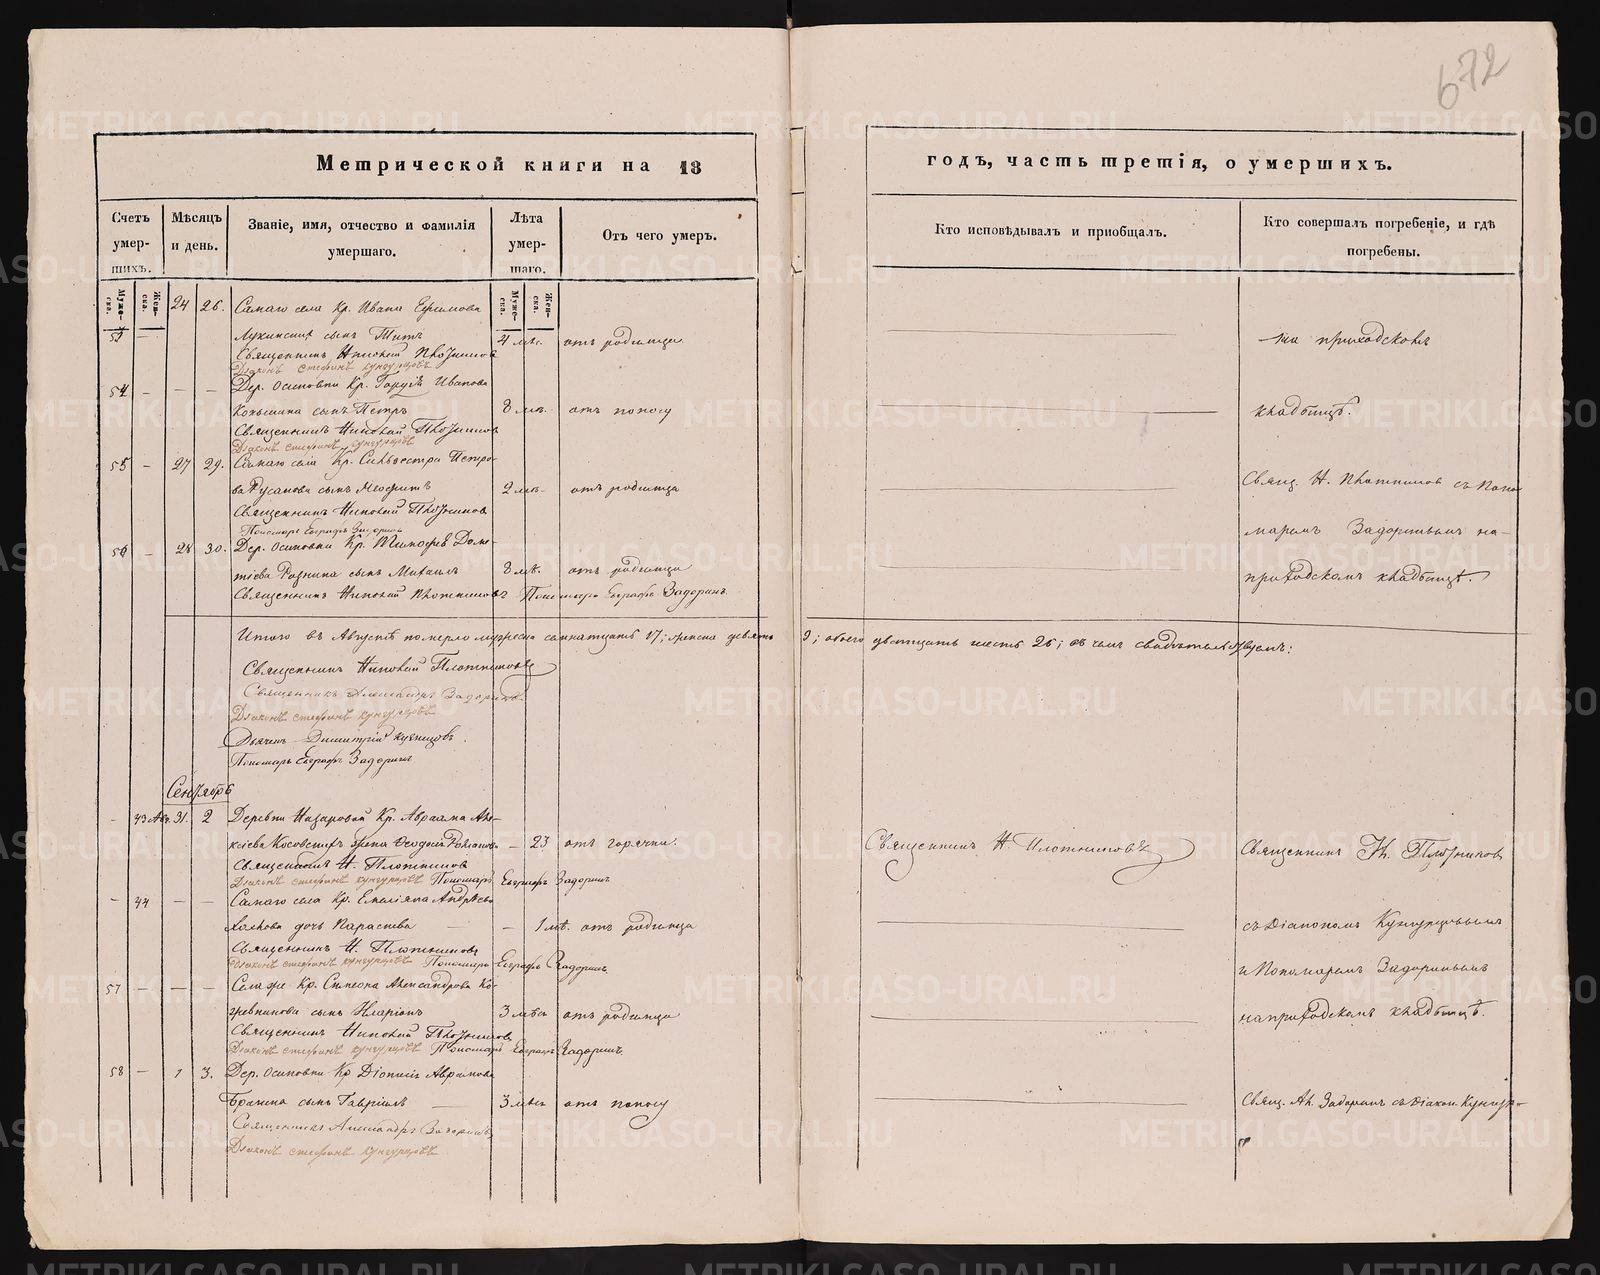 672
Метрической книги на 18
годъ, часть третія, о умершихъ.
Счетъ умер-шихъ.
Мѣсяцъ и день.
Званіе, имя, отчество и фамилія умершаго.
Лѣта умер-шаго.
Отъ чего умеръ.
Кто исповѣдывалъ и пріобщалъ.
Кто совершалъ погребеніе, и гдѣ погребены.
Муже-ска.
Жен-ска.
Муже-ска.
Жен-ска.
24 26. Самаго села Кр. Ивана Ефимова
53 — сынъ Титъ 4 мѣс. отъ родимца
на приходскомъ
Священникъ Николай Плотниковъ
Діаконъ Стефанъ Кунгурцевъ
54 — — — Дер. Осиповки Кр. Ивана
сынъ Петръ 8 мѣс. отъ поносу
кладбищѣ.
Священникъ Николай Плотниковъ
Діаконъ Стефанъ Кунгурцевъ
55 — 27 29. Самаго села Кр. Сильвестра Петро-
ва Русанова сынъ Неофитъ 2 мѣс. отъ родимца
Свящ. Н. Плотников съ Поно-
Священникъ Николай Плотниковъ
Пономарь Евграфъ Задоринъ
маремъ Задоринымъ на-
56 — 28 30. Дер. Осиповки Кр. Тимофея Доме-
тіева сынъ Михаилъ 8 мѣс. отъ родимца
приходскомъ кладбищѣ.
Священникъ Николай Плотниковъ Пономарь Евграфъ Задоринъ
Итого въ Августѣ померло мужеска семнатцать 17; женска девять 9; обоего дватцать шесть 26; въ чемъ свидѣтельствуемъ:
Священникъ Николай Плотниковъ
Священникъ Александръ Задоринъ
Діаконъ Стефанъ Кунгурцевъ
Дьячекъ Димитрій Кузнецовъ.
Пономарь Евграфъ Задоринъ
Сентябрь
— 43 Авг. 31. 2 Деревни Назаровой Кр. Авраама Але-
ксіева жена Феодосія — 23 отъ горячки.
Священникъ Н. Плотниковъ
Священникъ Н. Плотниковъ
Священникъ Н. Плотниковъ
Діаконъ Стефанъ Кунгурцевъ Пономарь Евграфъ Задоринъ
— 44 — — Самаго села Кр. Емеліяна Андрѣева
дочь Параскева — — 1 мѣ. отъ родимца
съ Діакономъ Кунгурцовымъ
Священникъ Н. Плотниковъ
Діаконъ Стефанъ Кунгурцевъ Пономарь Евграфъ Задоринъ
и Пономаремъ Задоринымъ
57 — — — Села же Кр. Симеона Александрова Ко-
сынъ Иларіонъ 3 мѣся отъ родимца
на приходскомъ кладбищѣ.
Священникъ Николай Плотниковъ
Діаконъ Стефанъ Кунгурцевъ Пономарь Евграфъ Задоринъ
58 — 1 3. Дер. Осиповки Кр Діонисія Аврамова
сынъ Гавріилъ — 3 мѣся отъ поносу
Свящ. Ал. Задоринъ съ Діакон. Кунгур-
Священникъ Александръ Задоринъ
Діаконъ Стефанъ Кунгурцевъ
METRIKI.GASO-URAL.RU